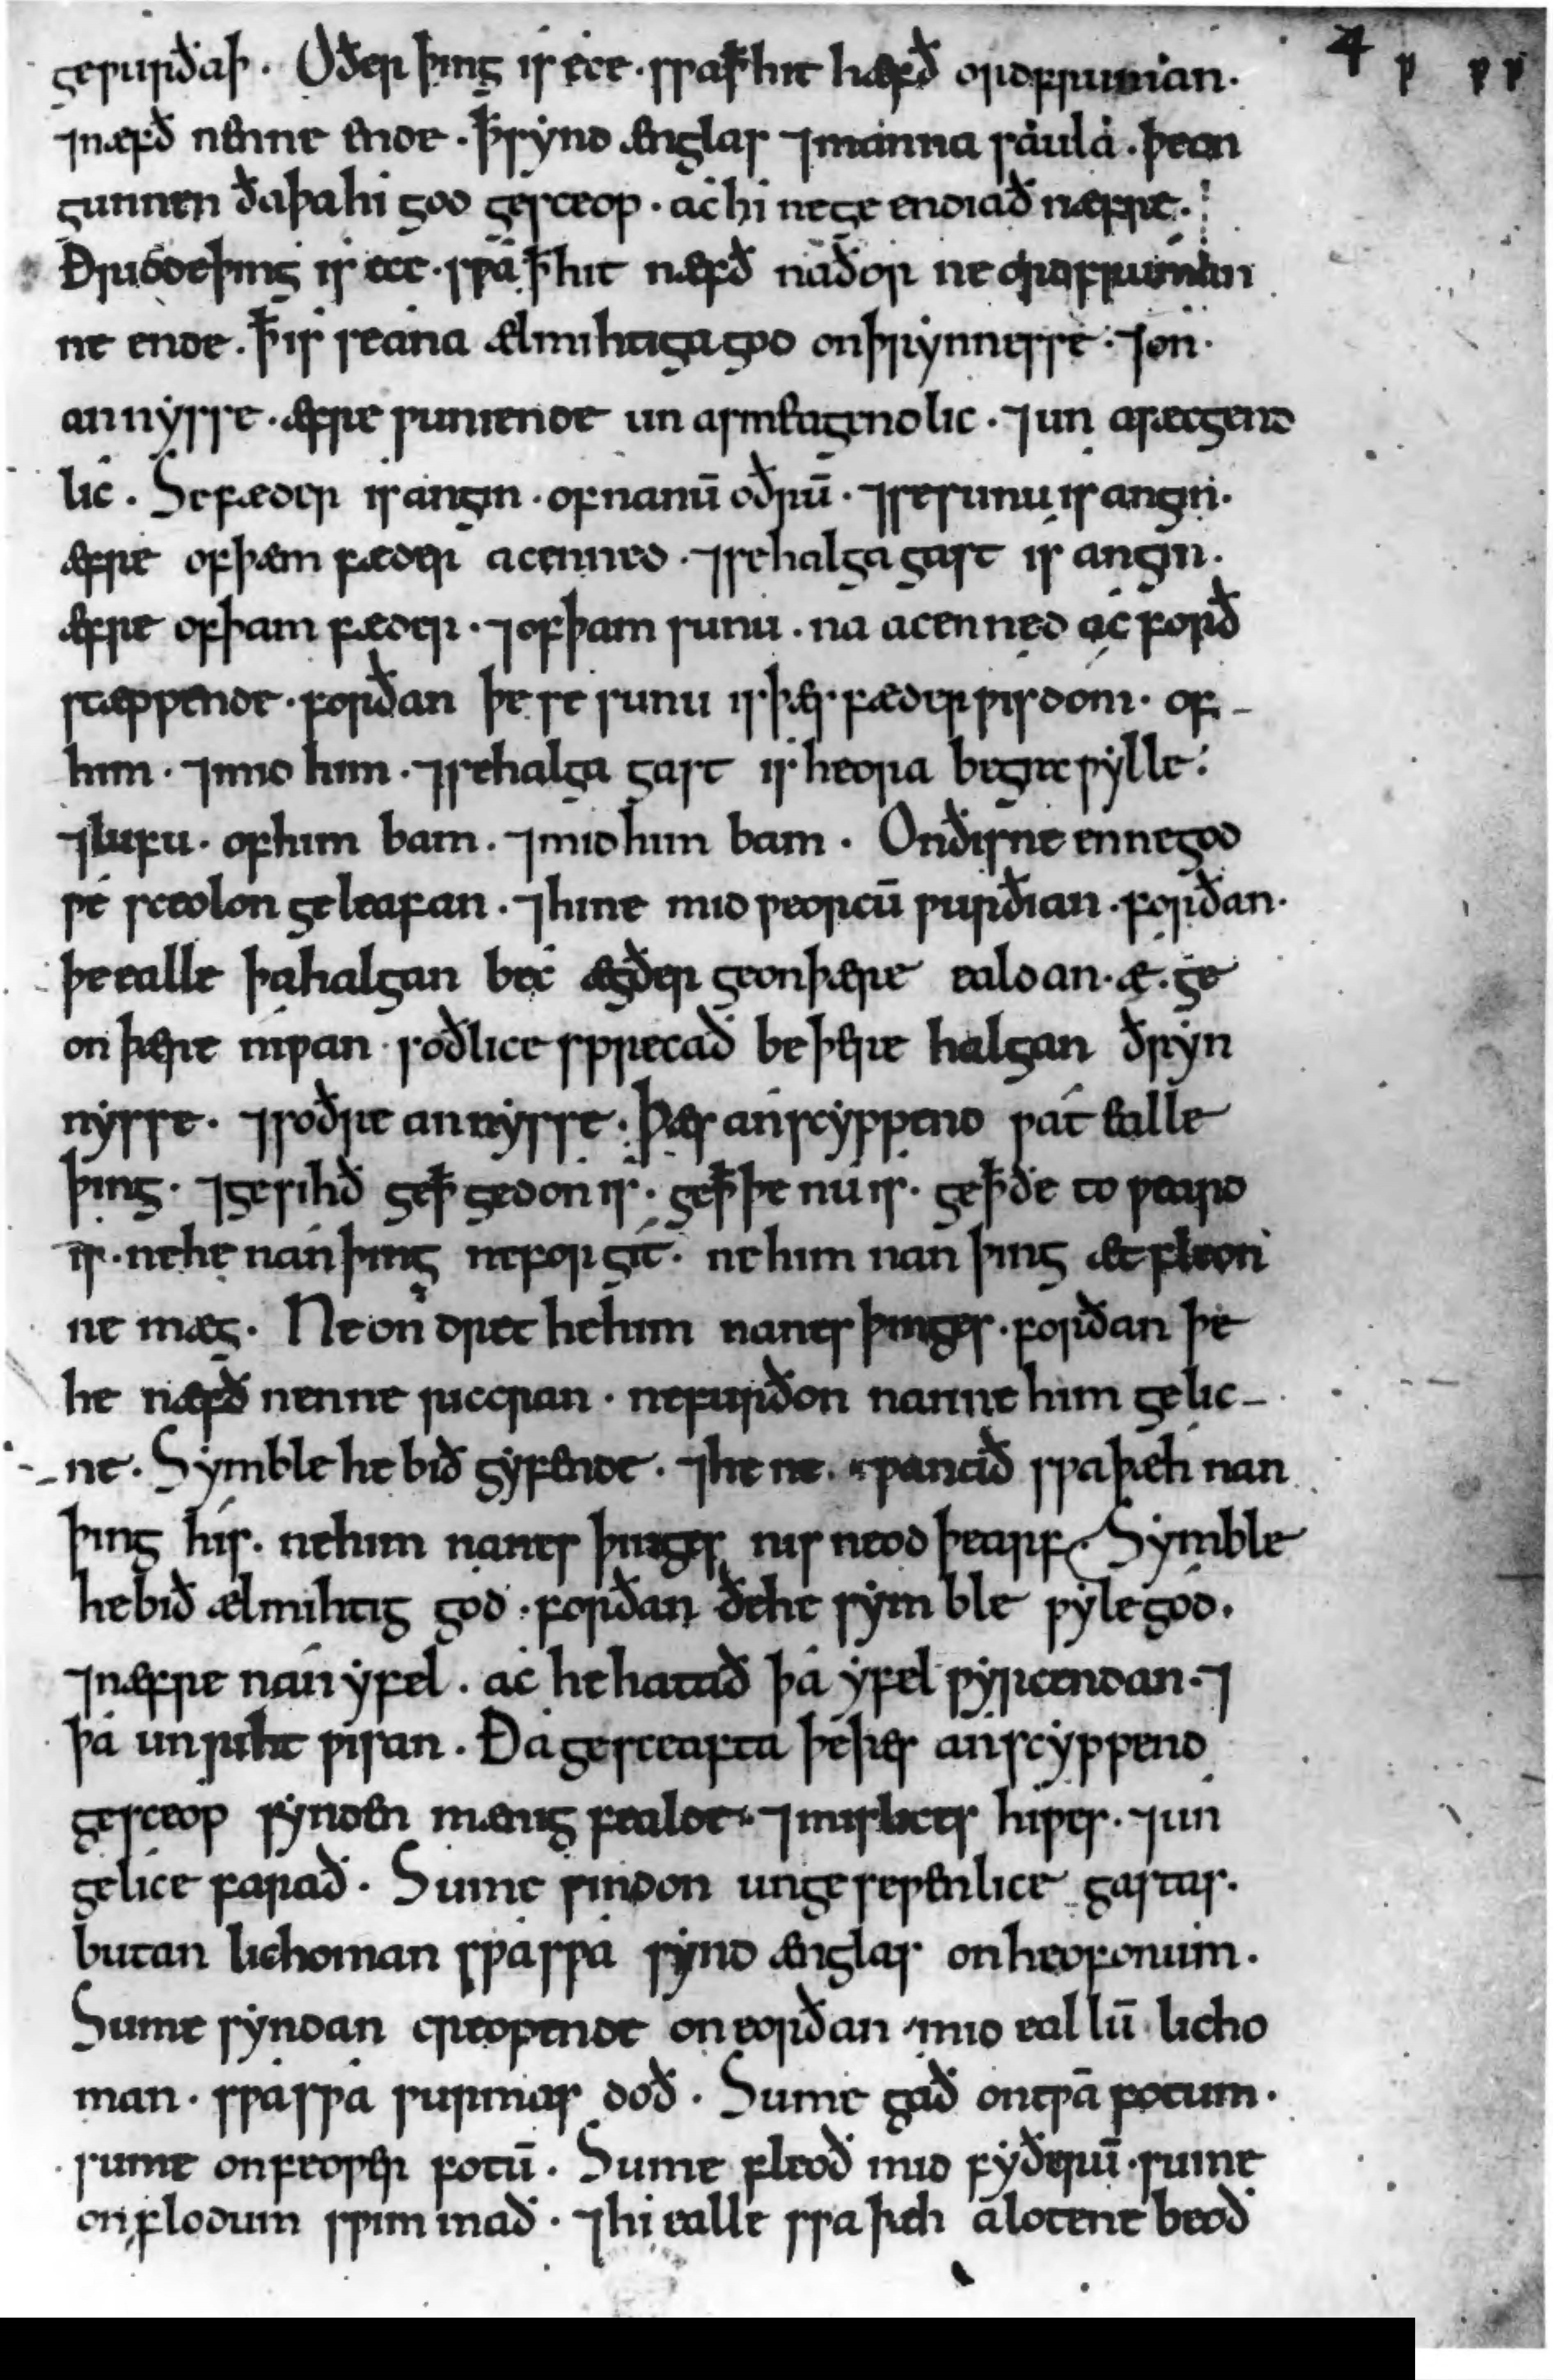 4 ƿ ƿƿ
geƿurðaþ. Oðer þing is ece. swa ꝥ hit hæfð ordfruman.
⁊ næfð nenne ende. ꝥ synd ænglas ⁊ manna saula. þe on
gunnen ða þa hi god gesceop. ac hi ne ge endiað næfre.
Ðridde þing is ece. sƿa ꝥ hit næfð naðor ne ordfruman
ne ende. ꝥ is se ana ælmihtiga god on þrynnesse. ⁊ on
annysse. æfre ƿuniende un asmeagendlic. ⁊ un asæcgend
lic. Se fæder is angin. of nanū oðrū. ⁊ se sunu is angin.
æfre of þæm fæder acenned. ⁊ se halga gast is angin.
æfre of þam fæder. ⁊ of þam sunu. na acenned ac forð
stæppende. forðan þe se sunu is þæs fæder ƿisdom. of
him. ⁊ mid him. ⁊ se halga gast is heora begræ ƿylle.
⁊ lufu. of him bam. ⁊ mid him bam. On ðisne enne god
ƿe sceolon geleafan. ⁊ hine mid ƿeorcū ƿurðian. forðan.
þe ealle þa halgan bec ægðer ge on þære ealdan. æ. ge
on þære niƿan soðlice sprecað be þere halgan ðryn
nysse. ⁊ soðre annysse. Þæs an scyppend ƿat ealle
þing. ⁊ gesihð ge ꝥ gedon is. ge ꝥ þe nu is. ge ꝥ ðe to ƿeard
is. ne he nan þing ne forgit. ne him nan þing ætfleon
ne mæg. Ne on dret he him nanes þinges. forðan þe
he næfð nenne riccran. ne furðon nanne him gelic
ne. Symble he bið gyfende. ⁊ he ne ƿanað sƿa þæh nan
þing his. ne him nanes þinges nis neod þearf. Symble
he bið ælmihtig god. forðan ðe he symble ƿyle god.
⁊ næfre nan yfel. ac he hatað þa yfel ƿyrcendan. ⁊
þa unriht ƿisan. Ða gesceafta þe þes an scyppend
gesceop synden mænig fealde. ⁊ mislices hiƿes. ⁊ un
gelice farað. Sume sindon ungeseƿenlice gastas.
butan lichoman sƿa sƿa synd ænglas on heofonum.
Sume syndan creopende on eorðan mid eallū licho
man. sƿa sƿa ƿurmas doð. Sume gað on tƿā fotum.
sume on feoƿer fotū. Sume fleoð mid fyðerū. sume
on flodum sƿimmað. ⁊ hi ealle sƿa þeh alotene beoð